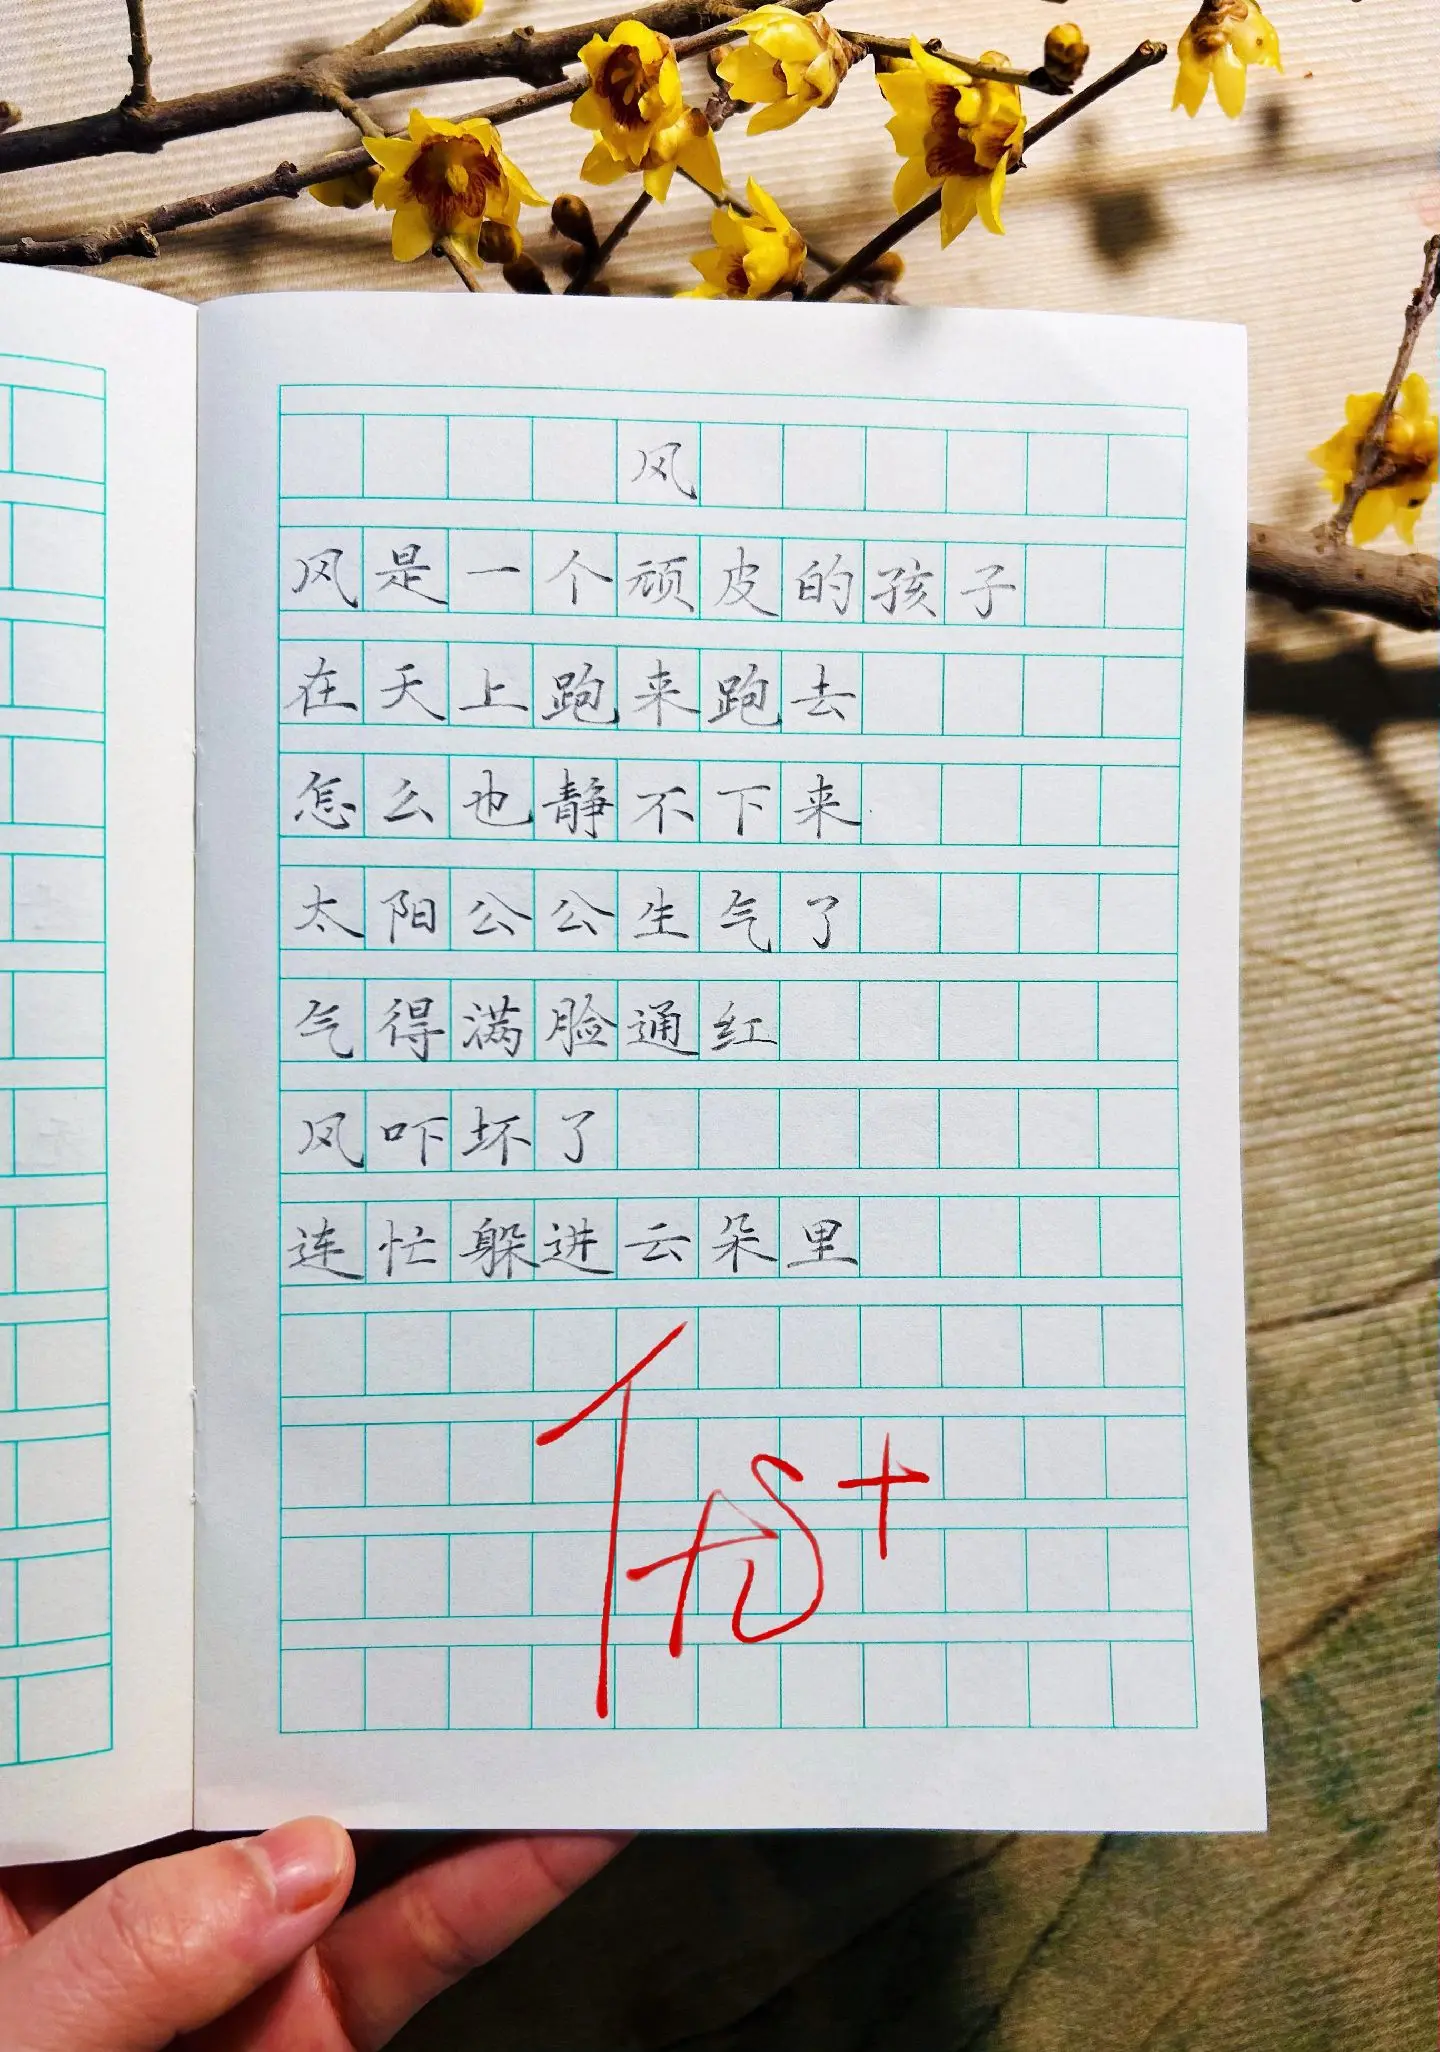 风
风是一个顽皮的孩子
在天上跑来跑去
怎么也静不下来
太阳公公生气了
气得满脸通红
风吓坏了
连忙躲进云朵里
优+